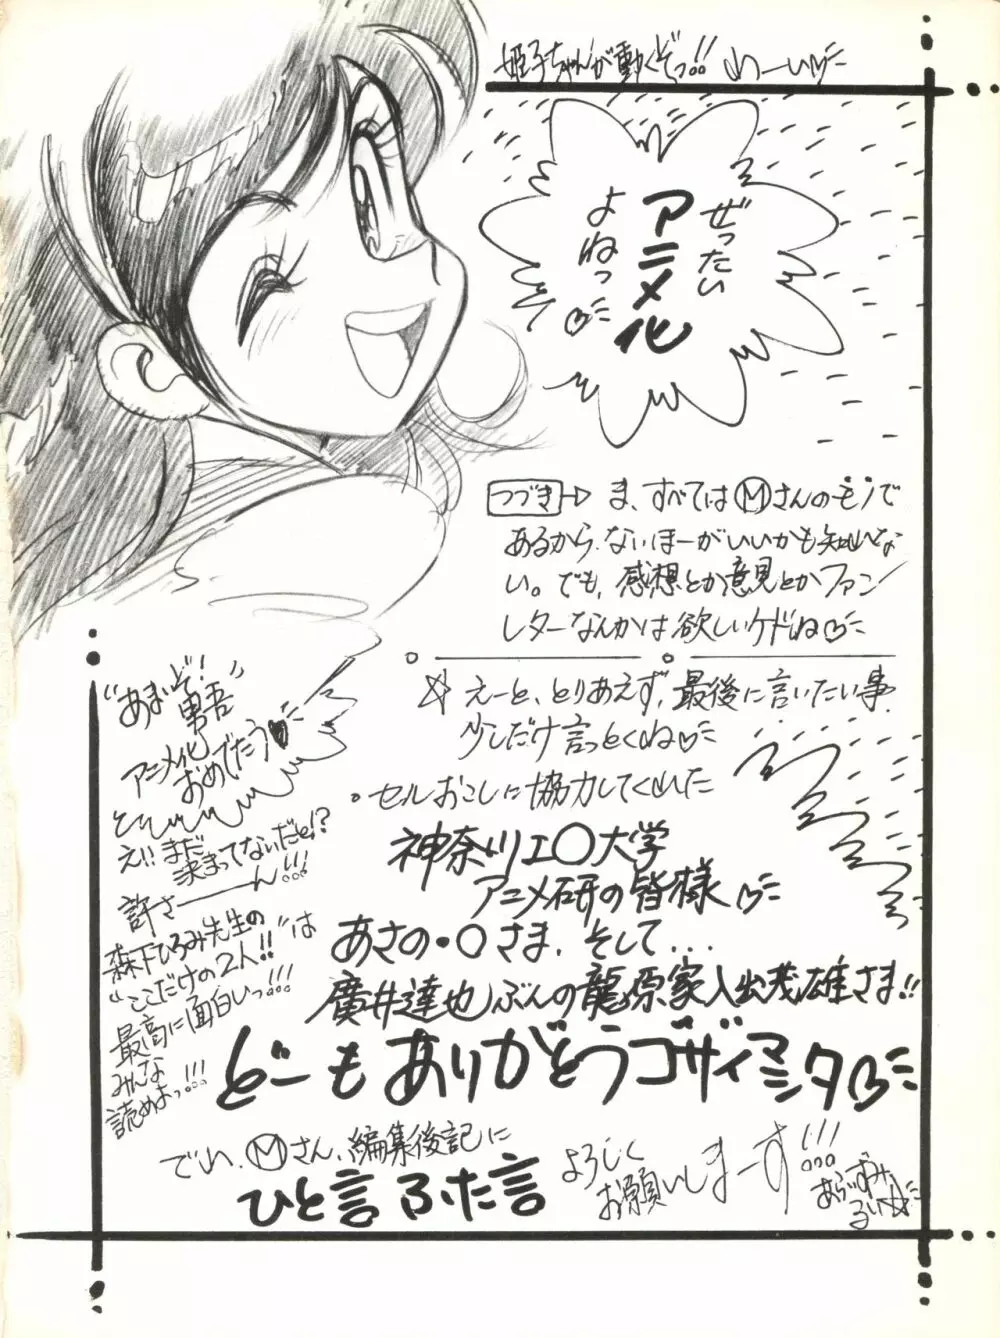 姫子ちゃんが動くぞっ!! わーいッ
ぜったい
アニメ化
よねっ
つづき→ ま、すべてはⓂさんのモノで
あるから、ないほーがいいかも知れな
い。でも、感想とか意見とかファン
レターなんかは欲しいケドね
☆えーと、とりあえず、最後に言いたい事、
少しだけ言っとくね
。セルおこしに協力してくれた
神奈川工〇大学
アニメ研の皆様
あさの・〇さま、そして...
廣井達也ぶんの龍原家入出茂雄さま!!
どーもありがとうゴザイマシタ
でわ、Ⓜさん、編集後記に
ひと言ふた言
よろしく
お願いしまーす!!!
あらいずみ
るい☆
"あまいぞ!
男吾"
アニメ化
おめでたう♥
え!! まだ
決まってないだと!?
許さーん!!!
森下ひろみ先生の
"ここだけの2人!!"は
最高に面白いっ!!!
みんな
読めよっ!!!